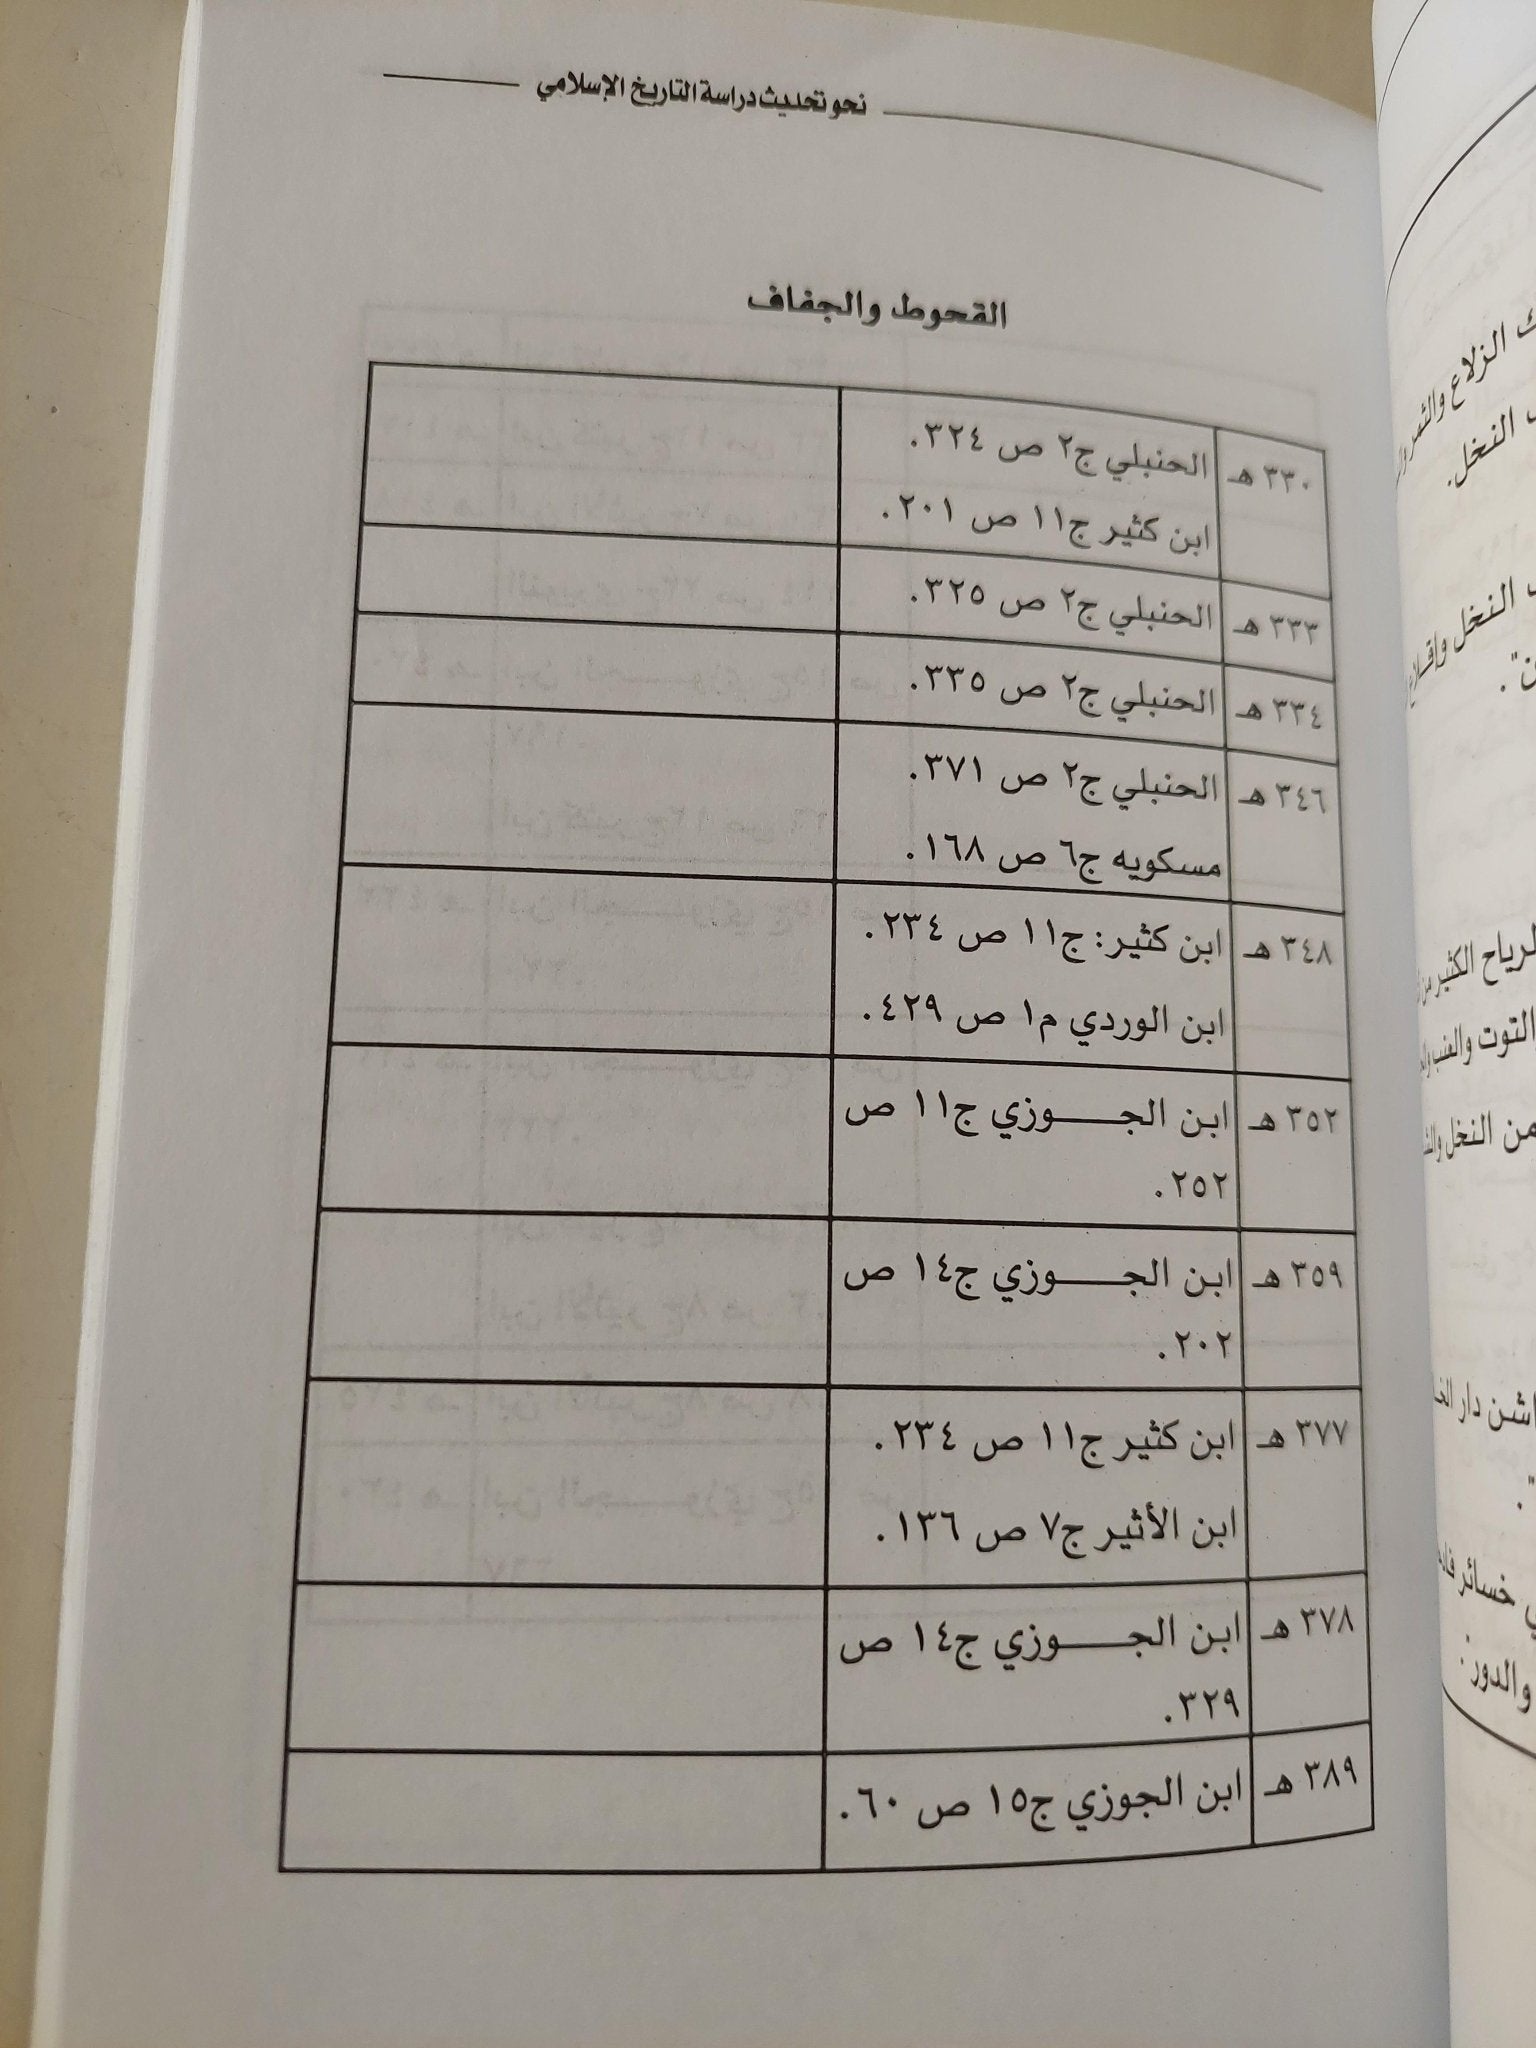 نحو تحديث دراسة التاريخ الإسلامي
القحوط والجفاف
٣٣٠ هـ الحنبلي ج٢ ص ٣٢٤.
ابن كثير ج١١ ص ٢٠١.
٣٣٣ هـ الحنبلي ج٢ ص ٣٢٥.
٣٣٤ هـ الحنبلي ج٢ ص ٣٣٥.
٣٤٦ هـ الحنبلي ج٢ ص ٣٧١.
مسكويه ج٦ ص ١٦٨.
٣٤٨ هـ ابن كثير: ج١١ ص ٢٣٤.
ابن الوردي م١ ص ٤٢٩.
٣٥٢ هـ ابن الجـــوزي ج١١ ص
٢٥٢.
٣٥٩ هـ ابن الجـــوزي ج١٤ ص
٢٠٢.
٣٧٧ هـ ابن كثير ج١١ ص ٢٣٤.
ابن الأثير ج٧ ص ١٣٦.
٣٧٨ هـ ابن الجـــوزي ج١٤ ص
٣٢٩.
٣٨٩ هـ ابن الجوزي ج١٥ ص ٦٠.
الزلاع والثمر
النخل.
النخل
الرياح الكثير من
التوت والعنب
من النخل
دار
خسائر
والدور.